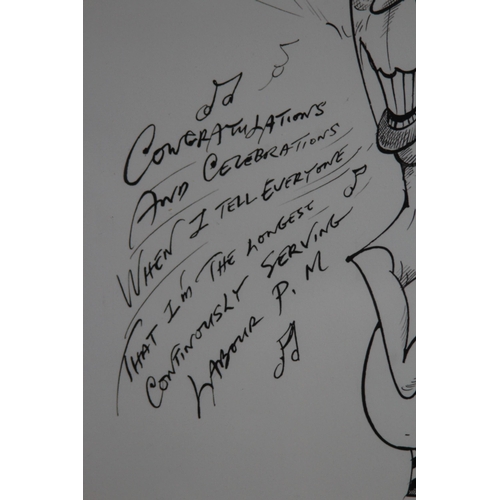 CONGRATULATIONS
AND CELEBRATIONS
WHEN I TELL EVERYONE
THAT I'M THE LONGEST
CONTINOUSLY SERVING
LABOUR P.M